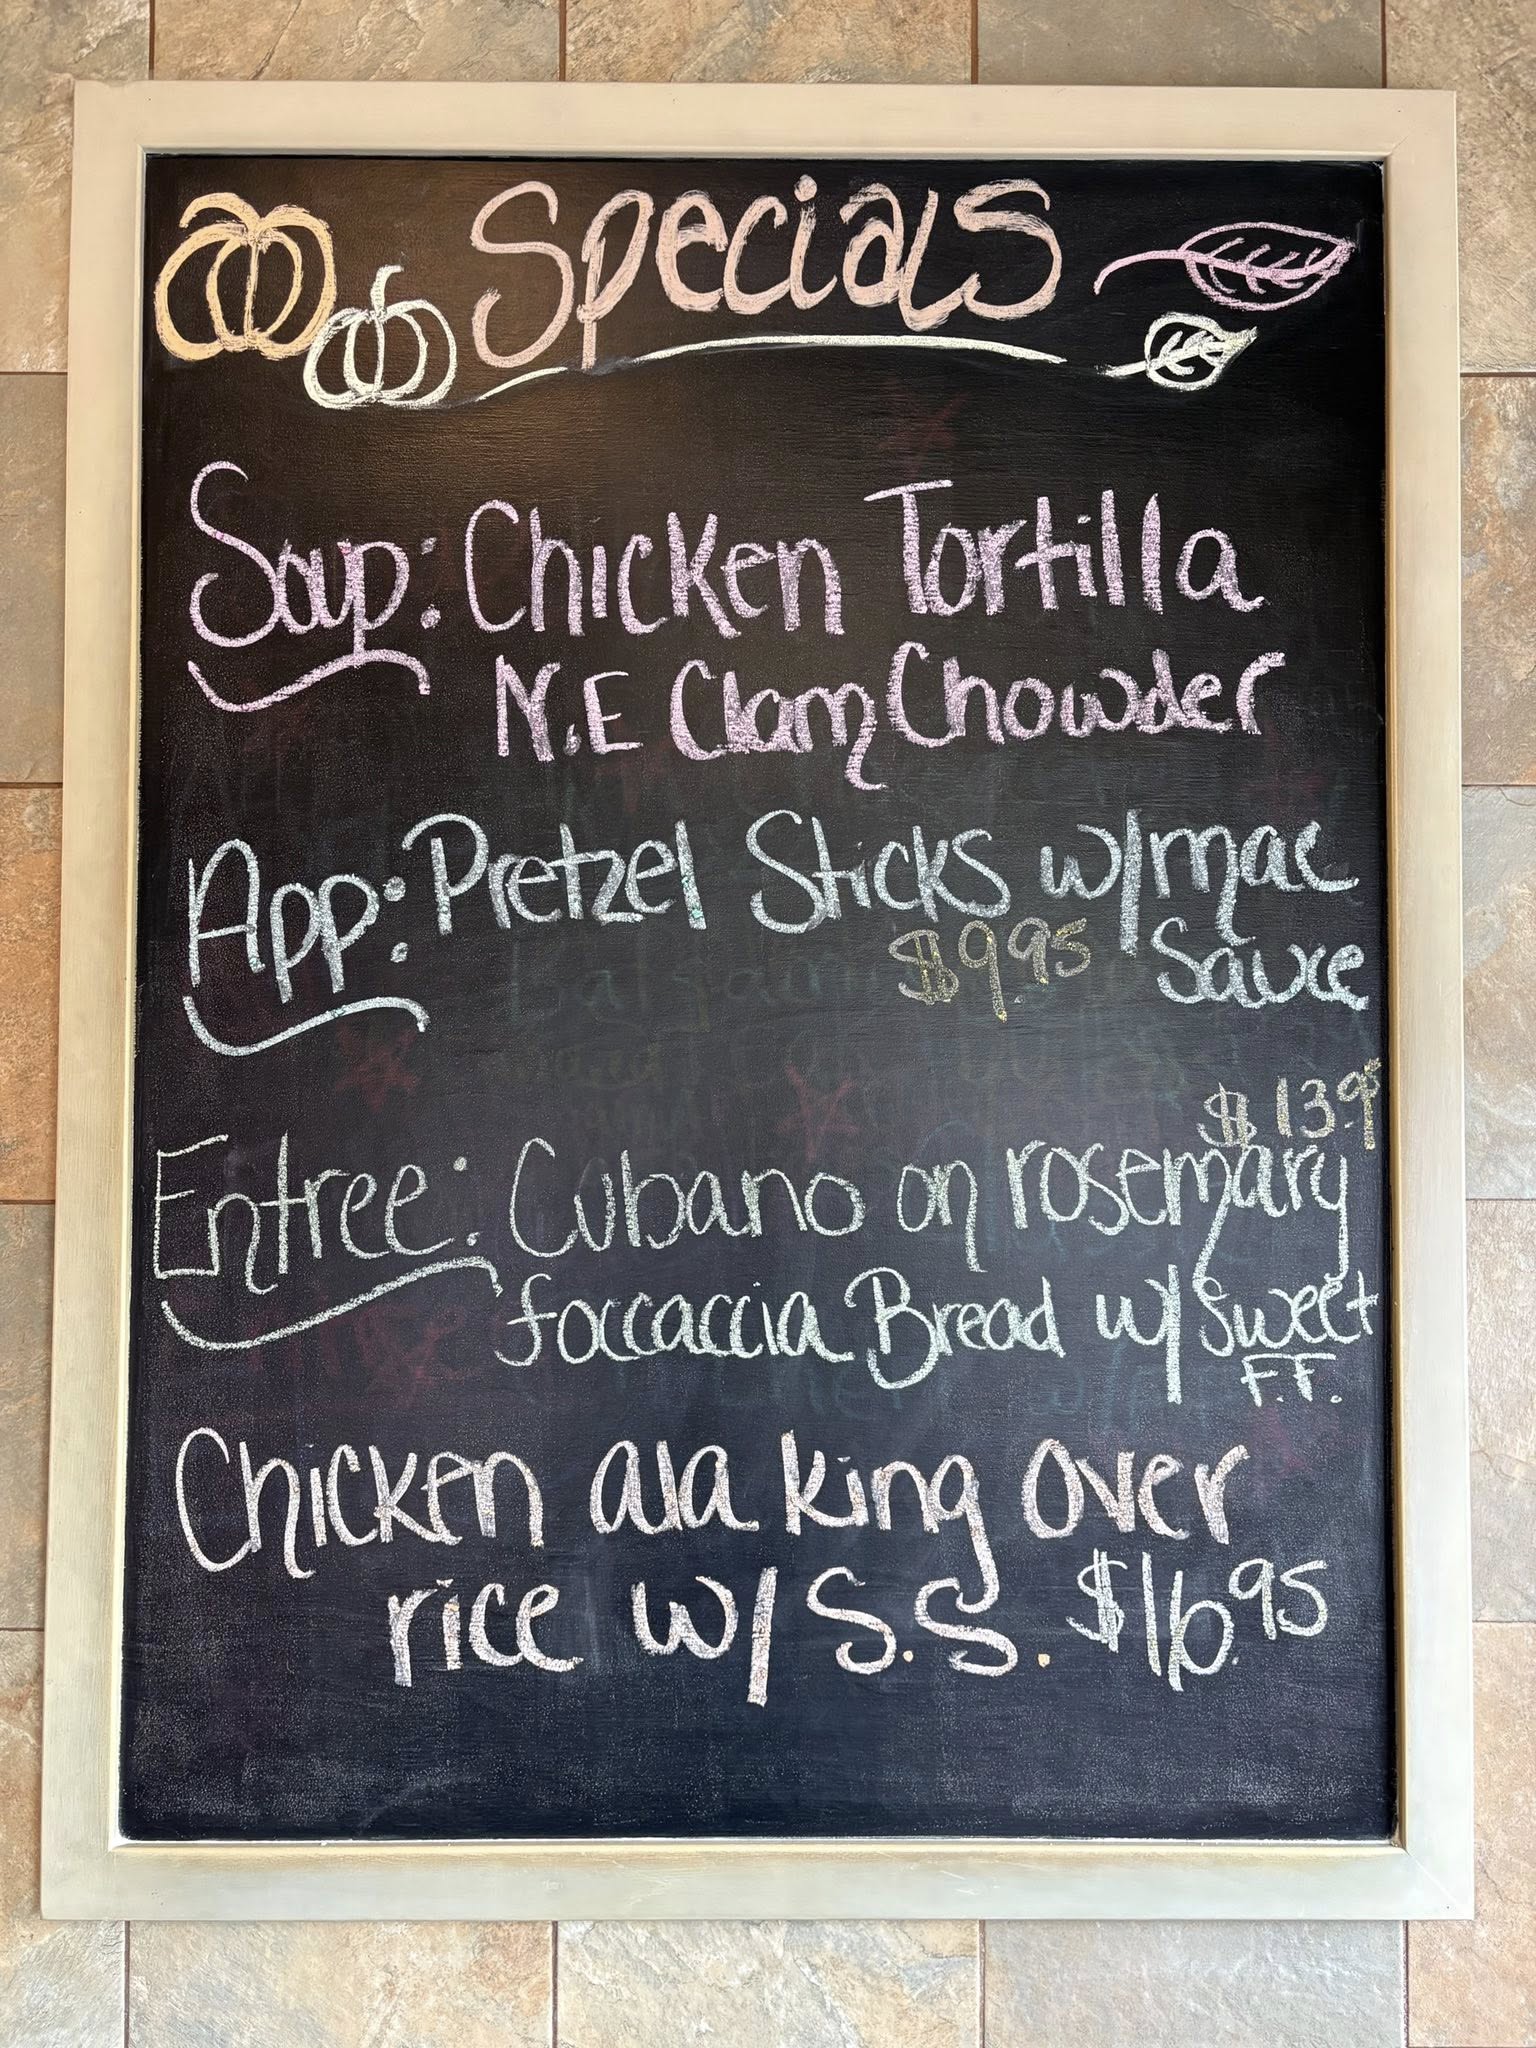 Specials
Soup: Chicken Tortilla
N.E Clam Chowder
App: Pretzel Sticks w/mac
$9.95 Sauce
$13.95
Entree: Cubano on rosemary
foccaccia Bread w/ Sweet
F.F.
Chicken ala king over
rice w/ S.S. $16.95